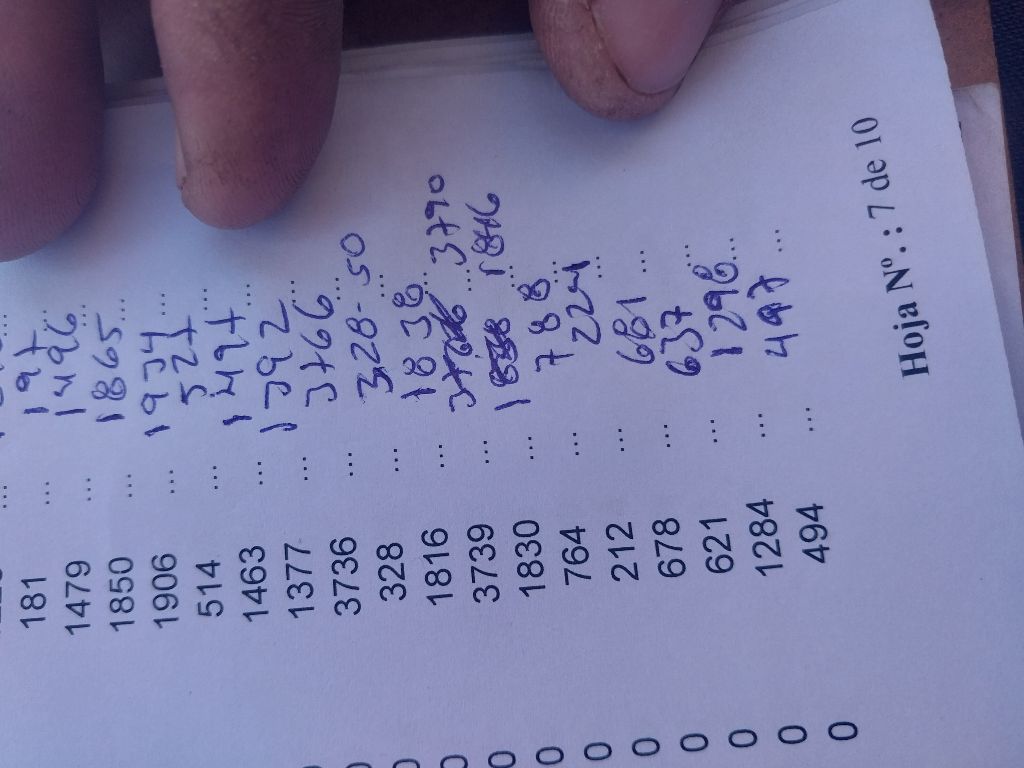 181 ... 197 ...
1479 ... 1496 ...
1850 ... 1865 ...
1906 ... 1934 ...
514 ... 527 ...
1463 ... 1497 ...
1377 ... 1392 ...
3736 ... 3766 ...
0 328 ... 328-50
0 1816 ... 1838 ...
0 3739 ... 3790
0 1830 ... 1846
0 764 ... 788 ...
0 212 ... 224 ...
0 678 ... 681 ...
0 621 ... 637 ...
0 1284 ... 1298 ...
0 494 ... 497 ...
Hoja Nº. : 7 de 10